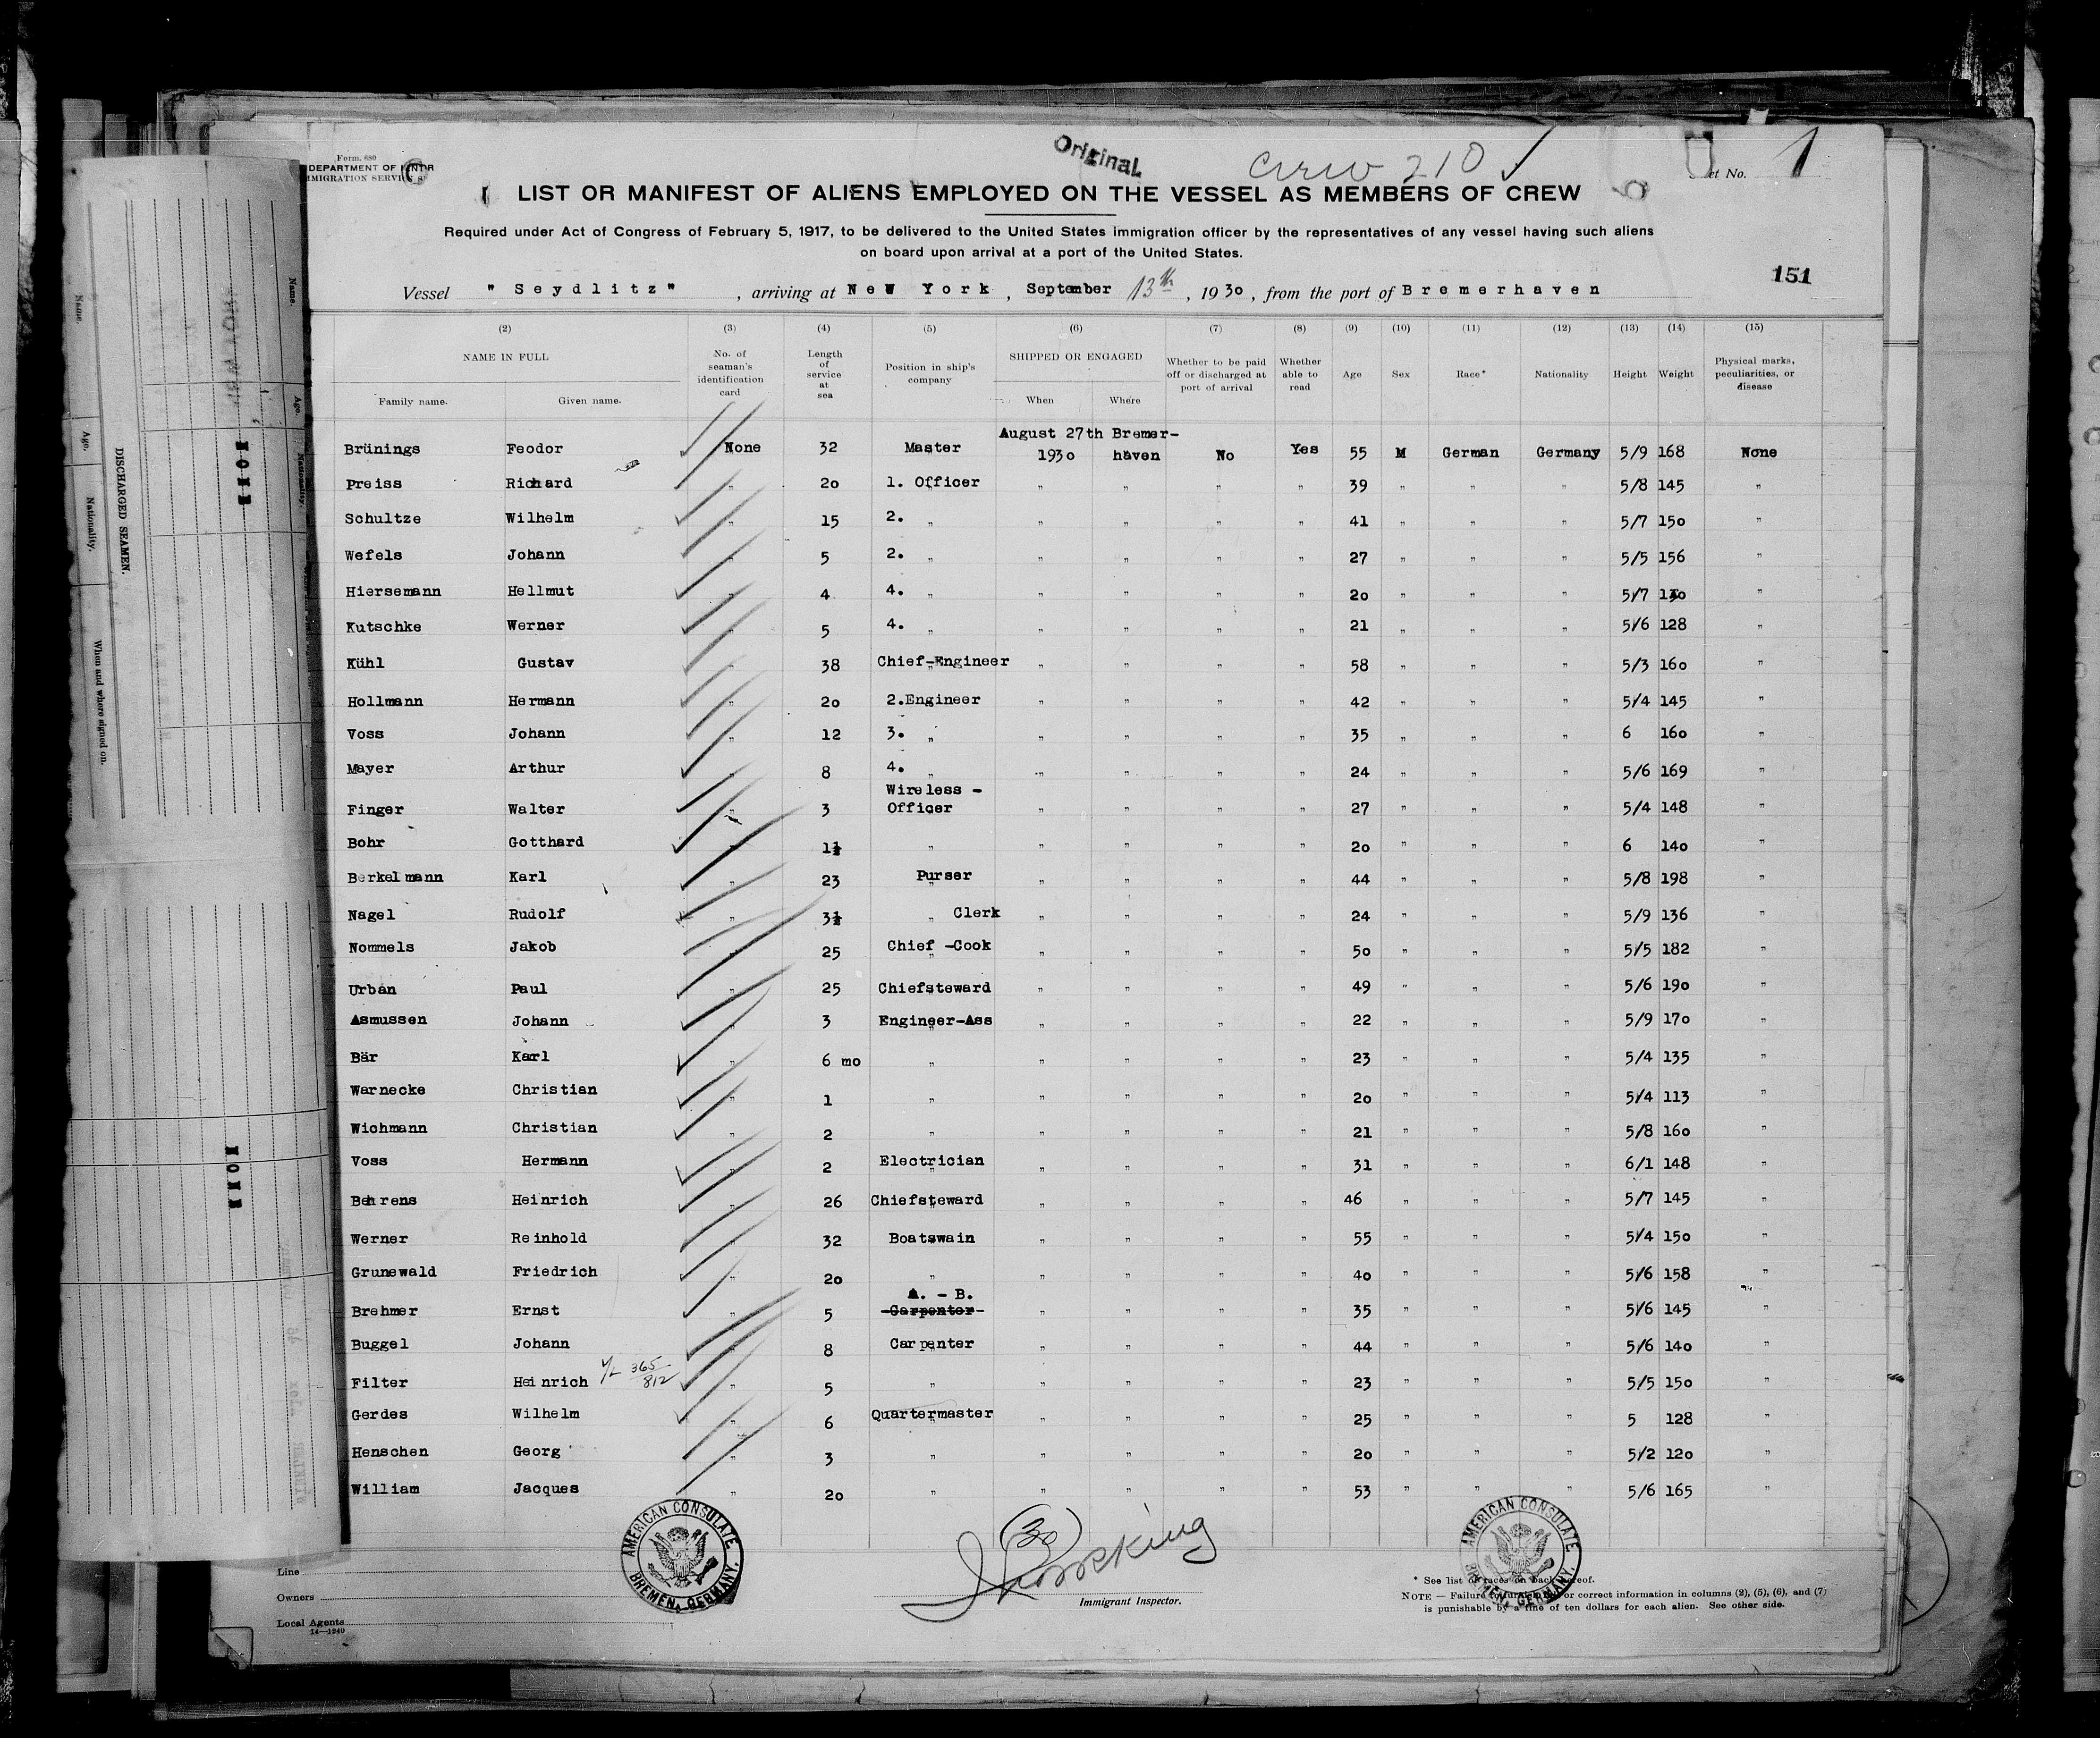 Original
Crew 210 ✓
Form. 680
DEPARTMENT OF
IMMIGRATION SERVICE
et No. 1
LIST OR MANIFEST OF ALIENS EMPLOYED ON THE VESSEL AS MEMBERS OF CREW
Required under Act of Congress of February 5, 1917, to be delivered to the United States immigration officer by the representatives of any vessel having such aliens
on board upon arrival at a port of the United States.
151
Vessel " Seydlitz " , arriving at New York , September 13th , 1930 , from the port of Bremerhaven
(2) (3) (4) (5) (6) (7) (8) (9) (10) (11) (12) (13) (14) (15)
NAME IN FULL
Family name. Given name.
No. of seaman's identification card
Length of service at sea
Position in ship's company
SHIPPED OR ENGAGED
When Where
Whether to be paid off or discharged at port of arrival
Whether able to read
Age
Sex
Race*
Nationality
Height
Weight
Physical marks, peculiarities, or disease
Brünings Feodor None 32 Master August 27th 1930 Bremer-haven No Yes 55 M German Germany 5/9 168 None
Preiss Richard " 20 1. Officer " " " " 39 " " " 5/8 145 "
Schultze Wilhelm " 15 2. " " " " " 41 " " " 5/7 150 "
Wefels Johann " 5 2. " " " " " 27 " " " 5/5 156 "
Hiersemann Hellmut " 4 4. " " " " " 20 " " " 5/7 130 "
Kutschke Werner " 5 4. " " " " " 21 " " " 5/6 128 "
Kühl Gustav " 38 Chief-Engineer " " " " 58 " " " 5/3 160 "
Hollmann Hermann " 20 2.Engineer " " " " 42 " " " 5/4 145 "
Voss Johann " 12 3. " " " " " 35 " " " 6 160 "
Mayer Arthur " 8 4. " " " " " 24 " " " 5/6 169 "
Finger Walter " 3 Wireless - Officer " " " " 27 " " " 5/4 148 "
Bohr Gotthard " 1½ " " " " " 20 " " " 6 140 "
Berkelmann Karl " 23 Purser " " " " 44 " " " 5/8 198 "
Nagel Rudolf " 3½ " Clerk " " " " 24 " " " 5/9 136 "
Nommels Jakob " 25 Chief -Cook " " " " 50 " " " 5/5 182 "
Urban Paul " 25 Chiefsteward " " " " 49 " " " 5/6 190 "
Asmussen Johann " 3 Engineer-Ass " " " " 22 " " " 5/9 170 "
Bär Karl " 6 mo " " " " " 23 " " " 5/4 135 "
Warnecke Christian " 1 " " " " " 20 " " " 5/4 113 "
Wichmann Christian " 2 " " " " " 21 " " " 5/8 160 "
Voss Hermann " 2 Electrician " " " " 31 " " " 6/1 148 "
Behrens Heinrich " 26 Chiefsteward " " " " 46 " " " 5/7 145 "
Werner Reinhold " 32 Boatswain " " " " 55 " " " 5/4 150 "
Grunewald Friedrich " 20 " " " " " 40 " " " 5/6 158 "
Brehmer Ernst " 5 A. - B. Carpenter " " " " 35 " " " 5/6 145 "
Buggel Johann " 8 Carpenter " " " " 44 " " " 5/6 140 "
Filter Heinrich 365/812 " 5 " " " " " 23 " " " 5/5 150 "
Gerdes Wilhelm " 6 Quartermaster " " " " 25 " " " 5 128 "
Henschen Georg " 3 " " " " " 20 " " " 5/2 120 "
William Jacques " 20 " " " " " 53 " " " 5/6 165 "
(30)
AMERICAN CONSULATE
BREMEN, GERMANY.
AMERICAN CONSULATE
BREMEN, GERMANY.
Line
Owners
Local Agents
14—1240
Immigrant Inspector.
* See list of races on back hereof.
NOTE — Failure to furnish full or correct information in columns (2), (5), (6), and (7)
is punishable by a fine of ten dollars for each alien. See other side.
DISCHARGED SEAMEN.
Name. Age. Nationality. When and where signed on.
Name. Age. Nationality.